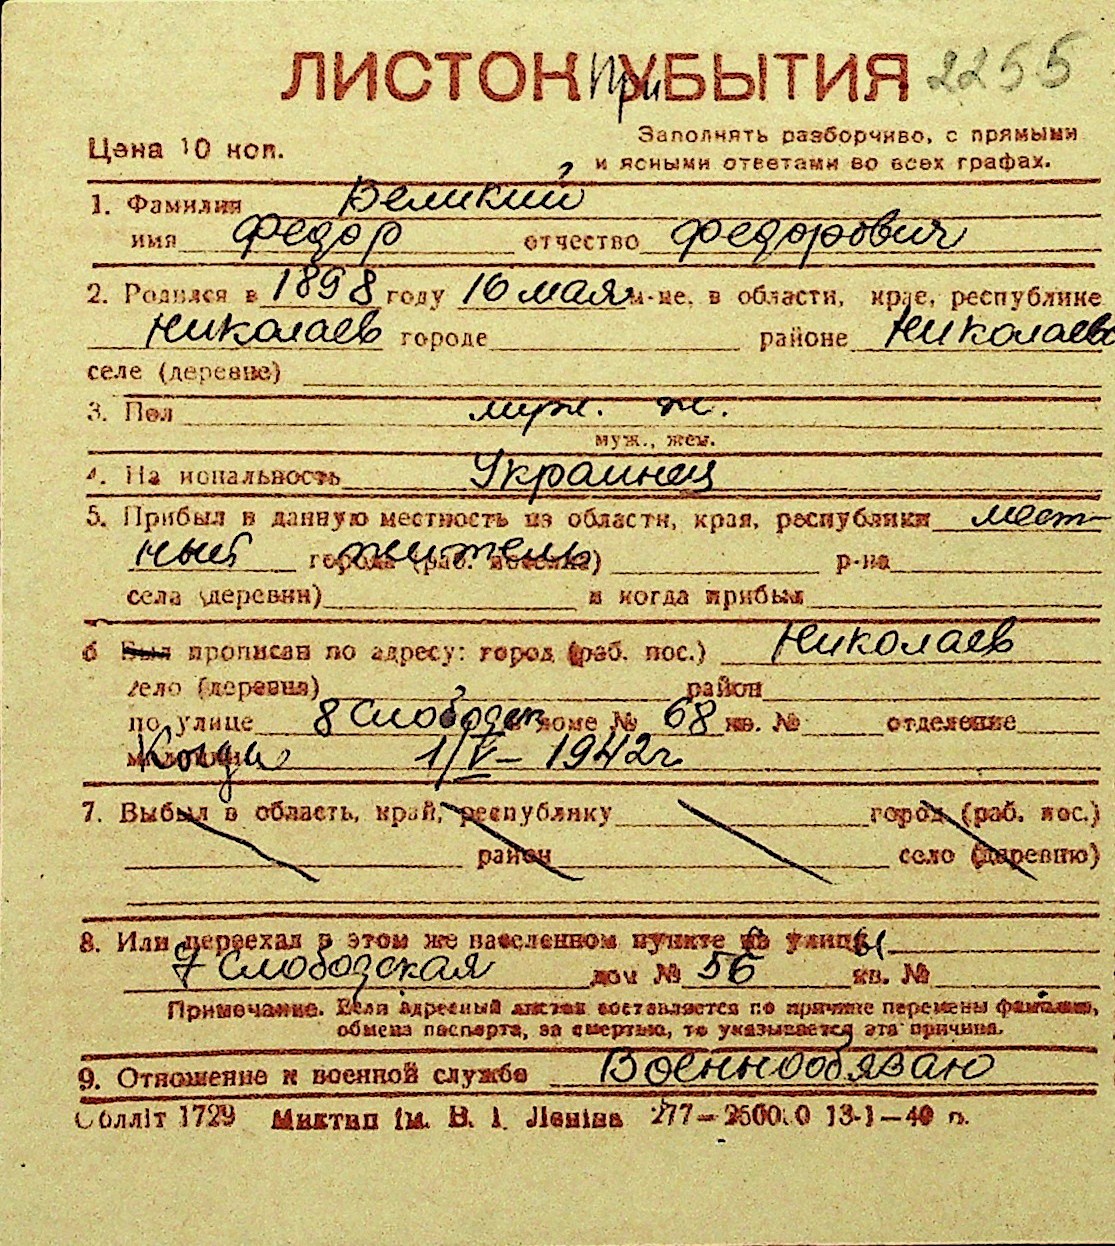 ЛИСТОК ПриУБЫТИЯ 2255
Цена 10 коп.
Заполнять разборчиво, с прямыми
и ясными ответами во всех графах.
1. Фамилия Великий
имя Федор отчество Федорович
2. Родился в 1898 году 16 мая м-це, в области, крае, республике
Николаев городе районе Николаев
селе (деревне)
3. Пол муж. п.
муж., жен.
4. На иональность Украинец
5. Прибыл в данную местность из области, края, республики мест-
ный житель города (раб. поселка) р-на
села (деревни) и когда прибыл
6 Был прописан по адресу: город (раб. пос.) Николаев
село (деревня) район
по улице 8 Слободск доме № 68 кв. № отделение
милиции Когда 1/V - 1942г.
7. Выбыл в область, край, республику город (раб. пос.)
район село (деревню)
8. Или переехал в этом же населенном пункте улицы
7 Слободская дом № 56 кв. №
Примечание. Если адресный листок составляется по причине перемены фамилии,
обмена паспорта, за смертью, то указывается эта причина.
9. Отношение к военной службе Военнообязаю
Облліт 1729 Миктип ім. В. І. Леніна 277—25000 13-1-40 г.